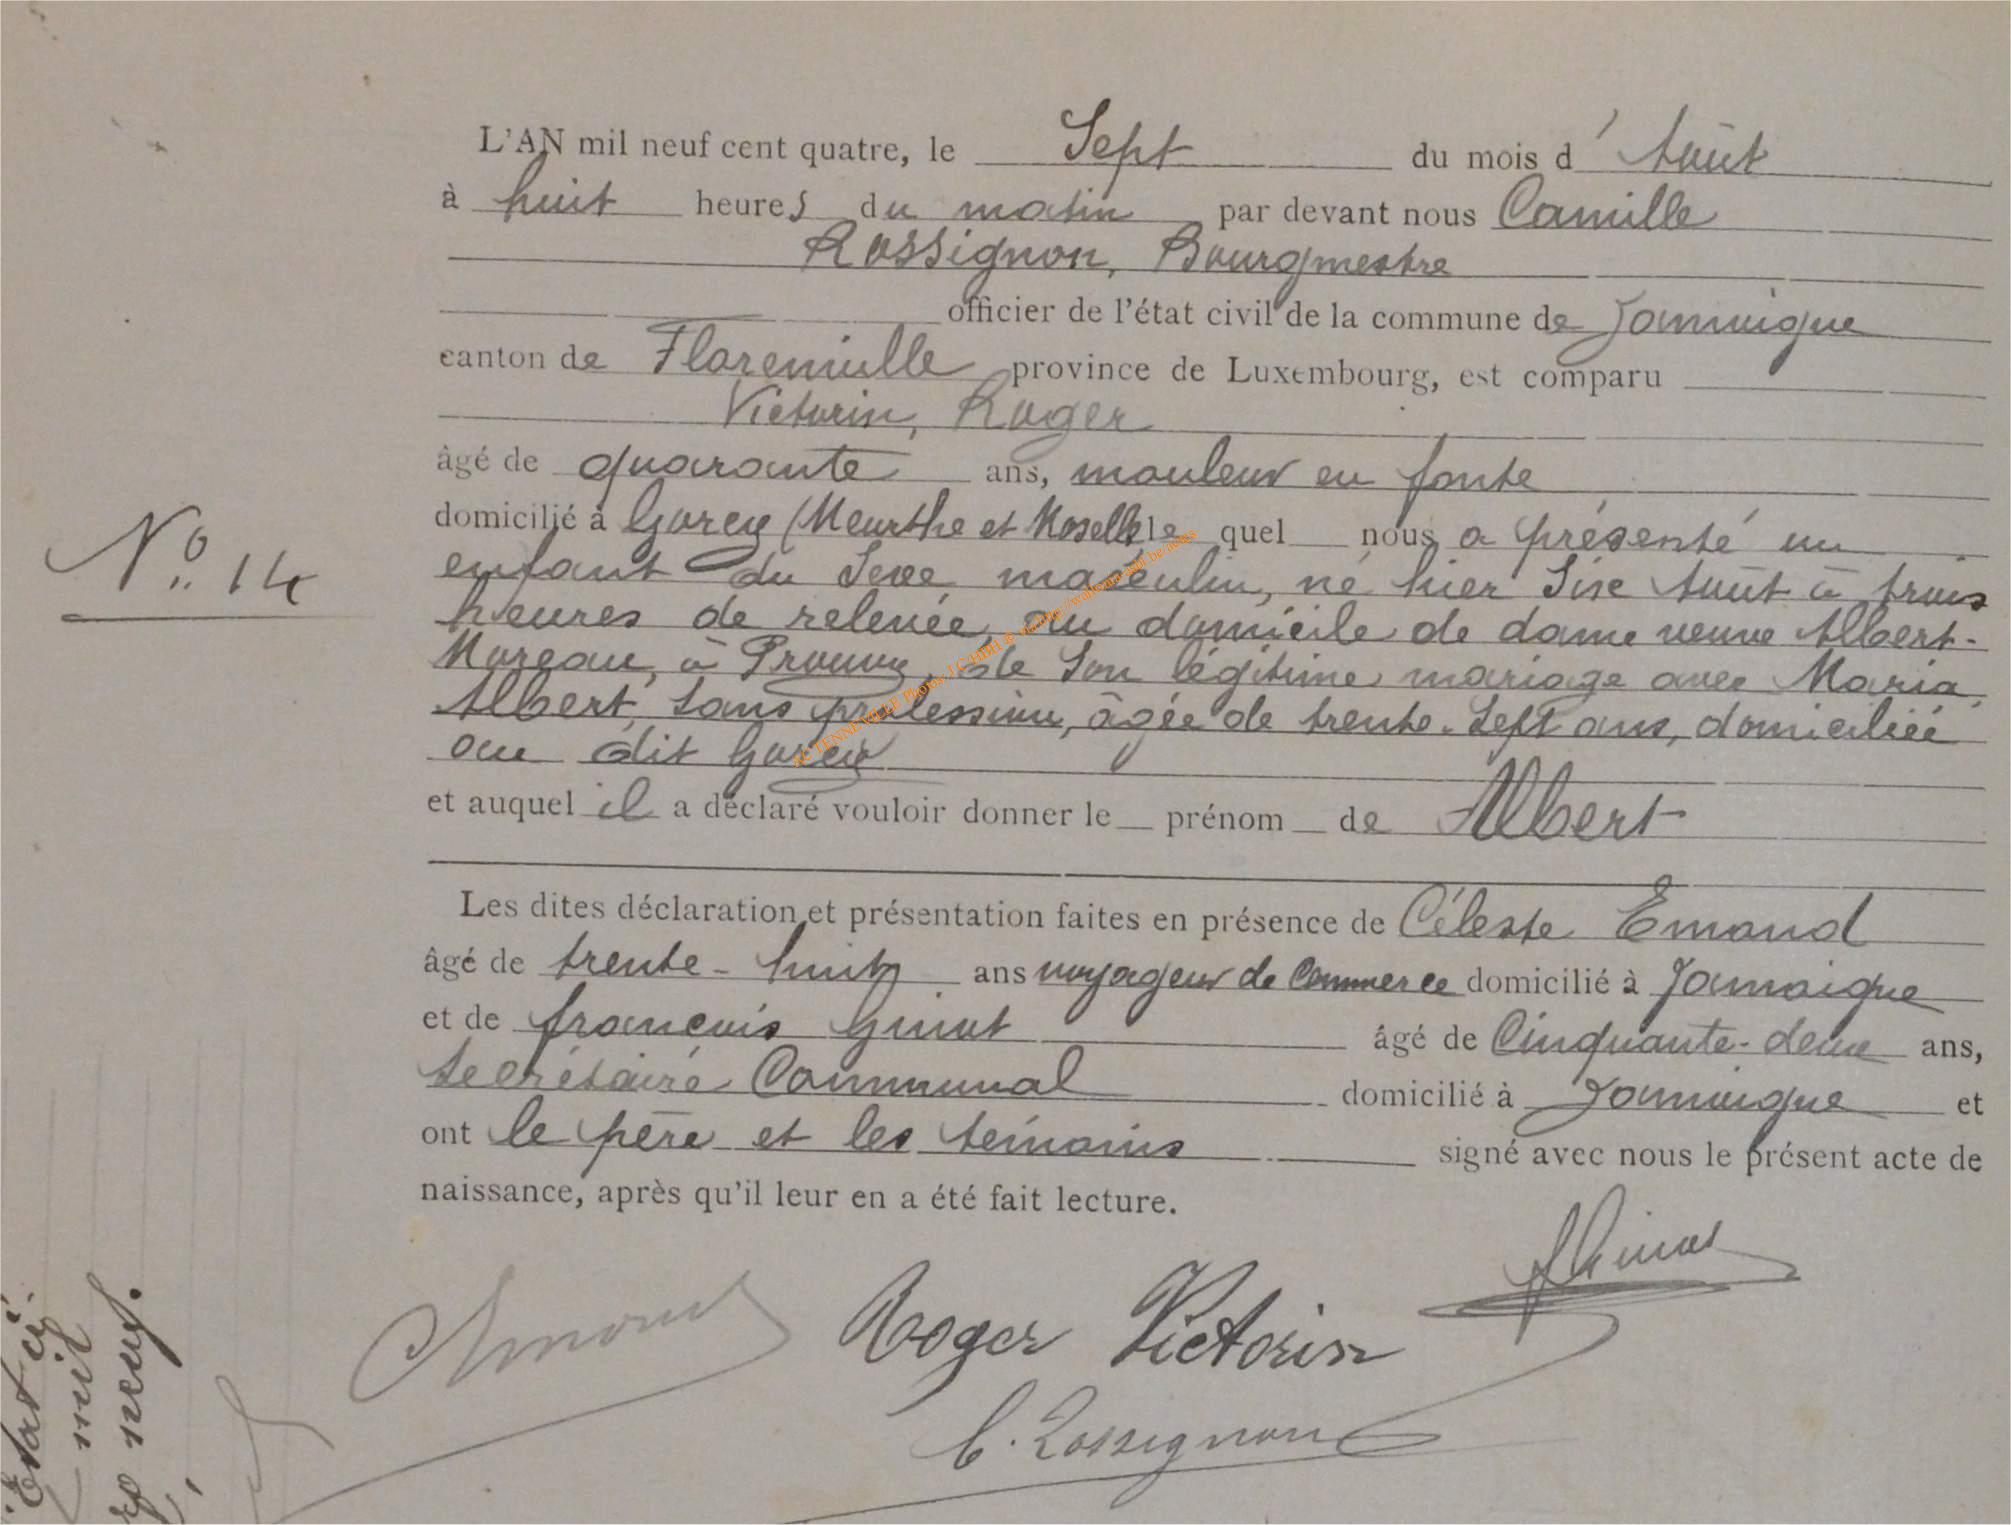 L'AN mil neuf cent quatre, le Sept du mois d'Août
à huit heures du matin par devant nous Camille
Rossignon, Bourgmestre
officier de l'état civil de la commune de Jamoigne
canton de Florenville province de Luxembourg, est comparu
Victorin, Roger
âgé de quarante ans, mouleur en fonte
domicilié à Gorcy (Meurthe et Moselle le quel nous a présenté un
enfant du Sexe masculin, né hier Six Août à trois
heures de relevée, au domicile de dame veuve Albert-
Moreau, à Prouvy, de Son légitime mariage avec Maria
Albert, Sans profession, âgée de trente-Sept ans, domiciliée
au dit Gorcy
et auquel il a déclaré vouloir donner le prénom de Albert
Les dites déclaration et présentation faites en présence de Céleste Emond
âgé de trente-huit ans voyageur de Commerce domicilié à Jamoigne
et de françois Guiot âgé de Cinquante-deux ans,
Secrétaire Communal domicilié à Jamoigne et
ont le père et les témoins signé avec nous le présent acte de
naissance, après qu'il leur en a été fait lecture.
No. 14
CEmond Roger Victorin FGuiot
C. Rossignon
mil
neuf.